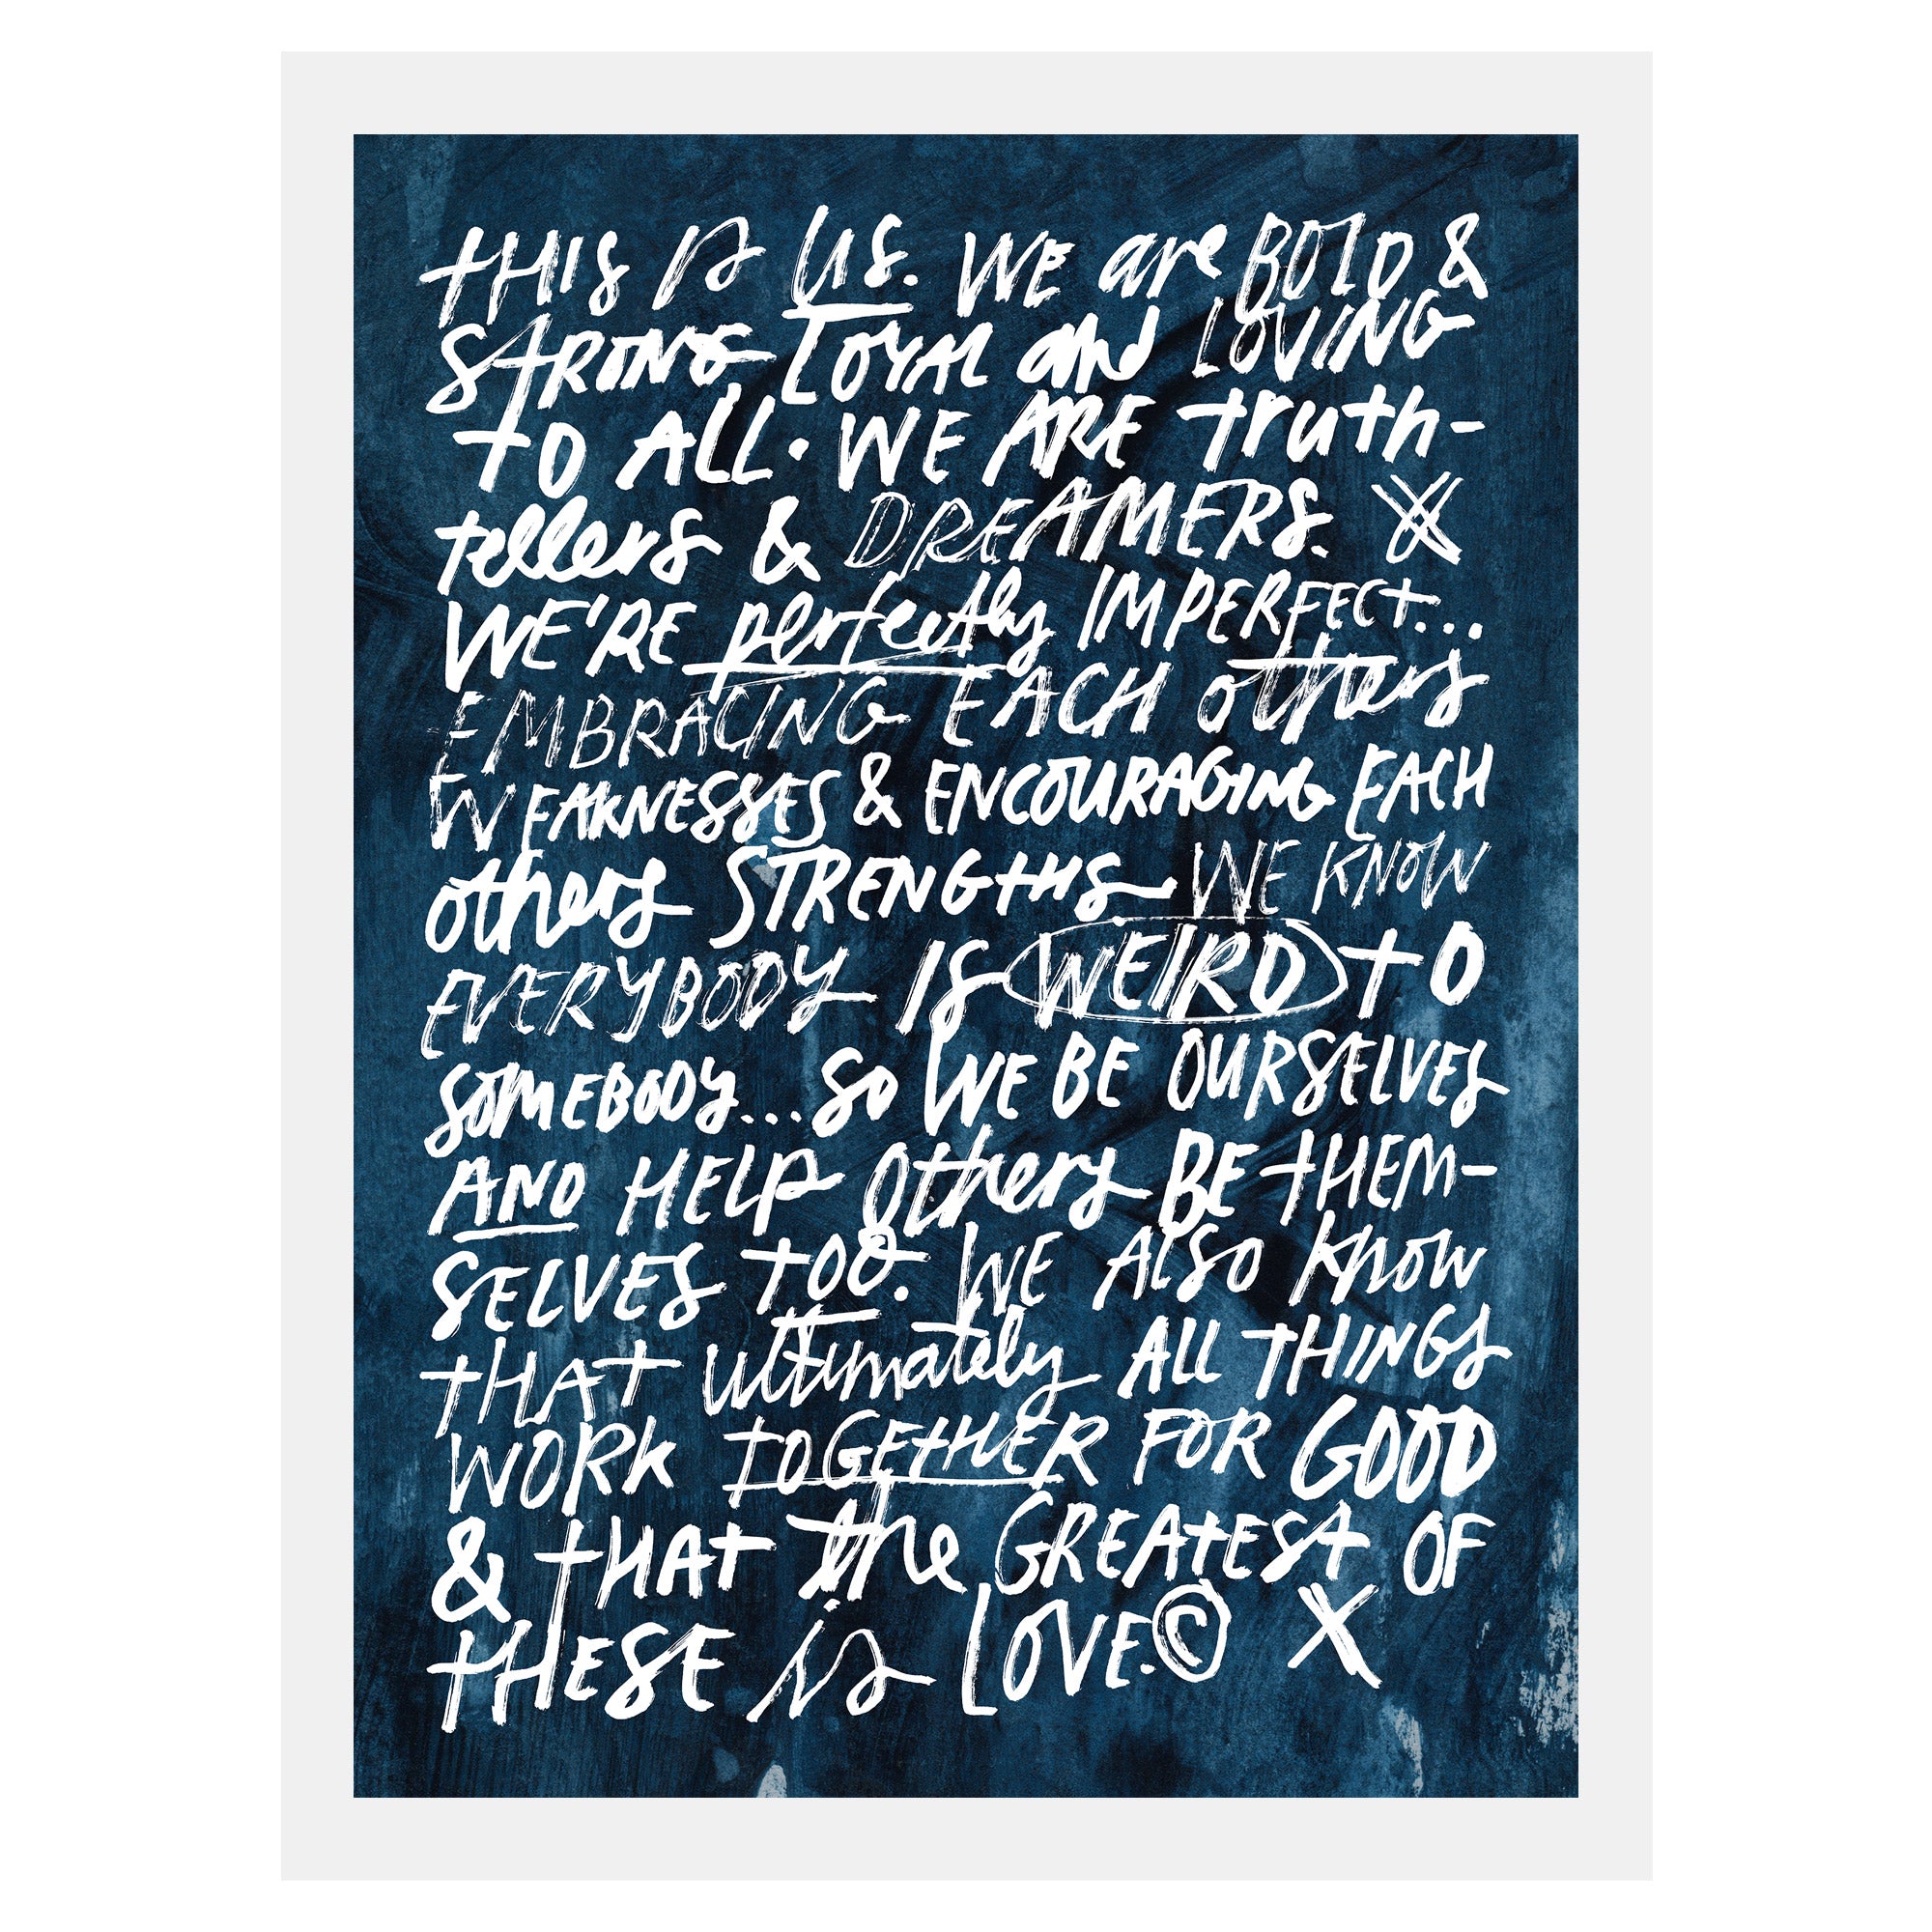 THIS is US. WE are BOLD &
STRONG LOYAL and LOVING
TO ALL. WE ARE truth-
tellers & DREAMERS. X
WE'RE perfectly IMPERFECT...
EMBRACING EACH others
WEAKNESSES & ENCOURAGING EACH
others STRENGTHS WE KNOW
EVERYBODY IS WEIRD TO
SOMEBODY... SO WE BE OURSELVES
AND HELP others BE THEM-
SELVES TOO. WE ALSO KNOW
THAT ultimately ALL THINGS
WORK TOGETHER FOR GOOD
& THAT the GREATEST OF
THESE is LOVE.© X